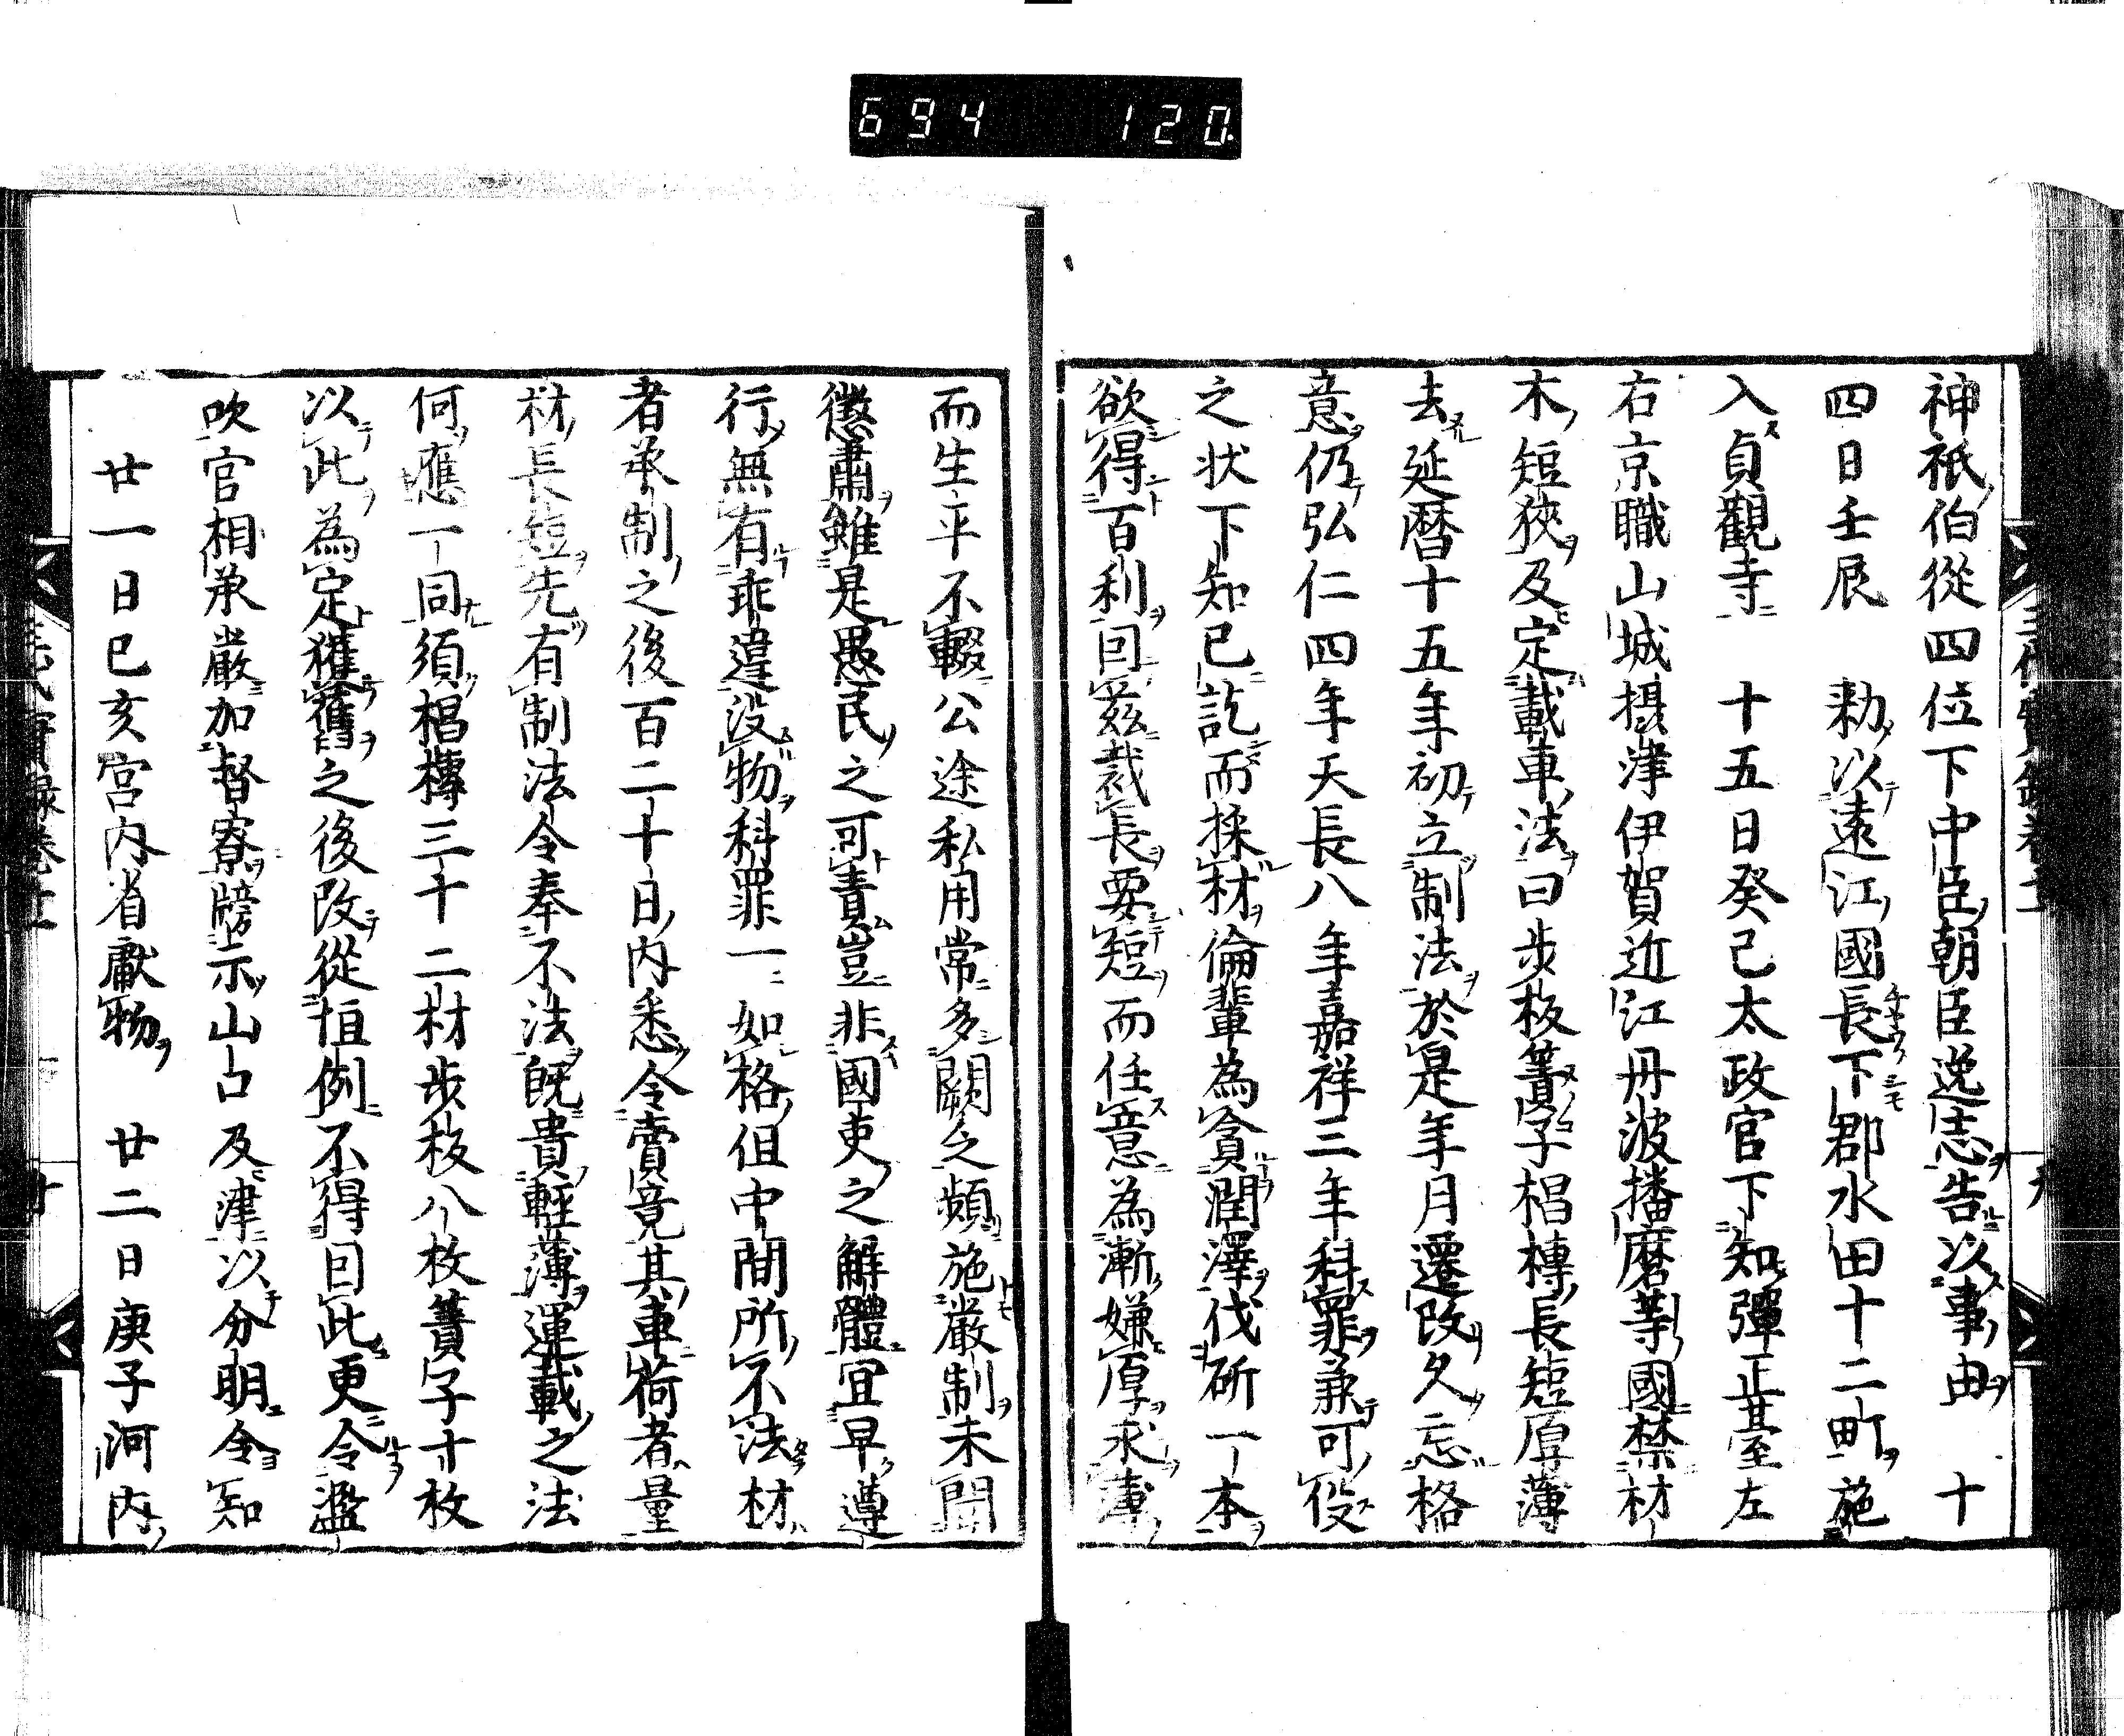 694 120
神祇伯從四位下中臣朝臣逸志告以事由　十
四日壬辰　勅以遠江國長下郡水田十二町施
入貞觀寺　十五日癸己太政官下知彈正臺左
右京職山城攝津伊賀近江丹波播磨等國禁材
木短狹及定載車法曰步板簀子榲榑長短厚薄
去延曆十五年初立制法於是年月遷改久忘格
意仍弘仁四年天長八年嘉祥三年科罪兼可役
之状下知已訖而採材倫輩為貪潤澤伐斫一本
欲得百利囙茲裁長要短而任意為漸嫌厚求薄
而生平不輟公途私用常多闕乏頻施嚴制未聞
懲肅雖是愚民之可責豈非國吏之解體宜早遵
行無有乖違沒物科罪一如格但中間所不法材
者承制之後百二十日內悉令賣竟其車荷者量
材長短先有制法令奉不法既貴輕薄運載之法
何應一同須榲榑三十二材步板八枚簀子十枚
以此為定獲舊之後改從恒例不得囙此更令濫
吹官相承嚴加督察牓示山口及津以分明令知
廿一日已亥宮內省獻物　廿二日庚子河內